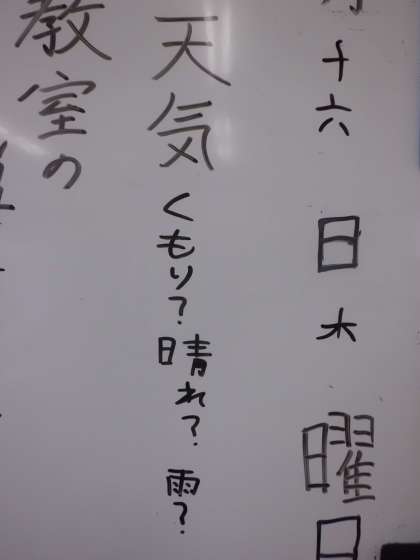 十六日木曜日
天気くもり?晴れ?雨?
教室の